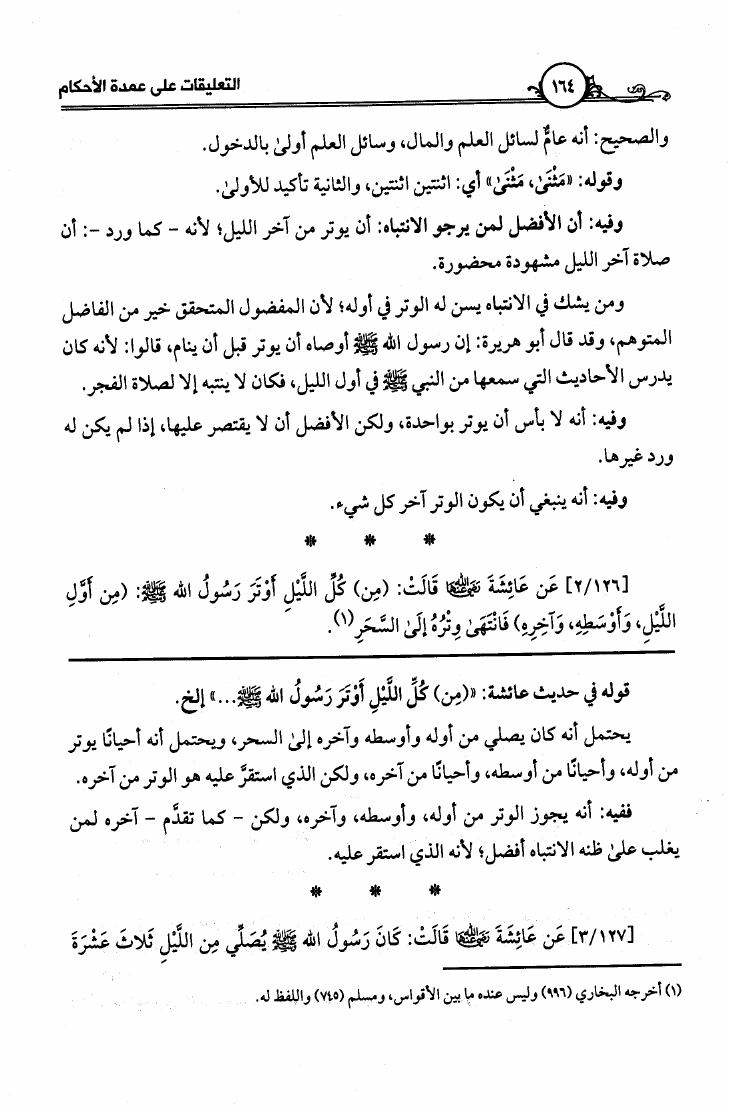 ١٦٤
التعليقات على عمدة الأحكام
والصحيح: أنه عامٌّ لسائل العلم والمال، وسائل العلم أولىٰ بالدخول.
وقوله: «مَثْنَىٰ، مَثْنَىٰ» أي: اثنتين اثنتين، والثانية تأكيد للأولىٰ.
وفيه: أن الأفضل لمن يرجو الانتباه: أن يوتر من آخر الليل؛ لأنه - كما ورد -: أن
صلاة آخر الليل مشهودة محضورة.
ومن يشك في الانتباه يسن له الوتر في أوله؛ لأن المفضول المتحقق خير من الفاضل
المتوهم، وقد قال أبو هريرة: إن رسول الله ﷺ أوصاه أن يوتر قبل أن ينام، قالوا: لأنه كان
يدرس الأحاديث التي سمعها من النبي ﷺ في أول الليل، فكان لا ينتبه إلا لصلاة الفجر.
وفيه: أنه لا بأس أن يوتر بواحدة، ولكن الأفضل أن لا يقتصر عليها، إذا لم يكن له
ورد غيرها.
وفيه: أنه ينبغي أن يكون الوتر آخر كل شيء.
* * *
[٢/١٢٦] عَن عَائِشَةَ رَضِيَ اللهُ عَنْهَا قَالَتْ: (مِن) كُلِّ اللَّيْلِ أَوْتَرَ رَسُولُ الله ﷺ: (مِن أَوَّلِ
اللَّيْلِ، وَأَوْسَطِهِ، وَآخِرِهِ) فَانْتَهَىٰ وِتْرُهُ إِلَىٰ السَّحَرِ(١).
قوله في حديث عائشة: «(مِن) كُلِّ اللَّيْلِ أَوْتَرَ رَسُولُ الله ﷺ...» إلخ.
يحتمل أنه كان يصلي من أوله وأوسطه وآخره إلىٰ السحر، ويحتمل أنه أحيانًا يوتر
من أوله، وأحيانًا من أوسطه، وأحيانًا من آخره، ولكن الذي استقرَّ عليه هو الوتر من آخره.
ففيه: أنه يجوز الوتر من أوله، وأوسطه، وآخره، ولكن - كما تقدَّم - آخره لمن
يغلب علىٰ ظنه الانتباه أفضل؛ لأنه الذي استقر عليه.
* * *
[٣/١٢٧] عَن عَائِشَةَ رَضِيَ اللهُ عَنْهَا قَالَتْ: كَانَ رَسُولُ الله ﷺ يُصَلِّي مِن اللَّيْلِ ثَلَاثَ عَشْرَةَ
(١) أخرجه البخاري (٩٩٦) وليس عنده ما بين الأقواس، ومسلم (٧٤٥) واللفظ له.